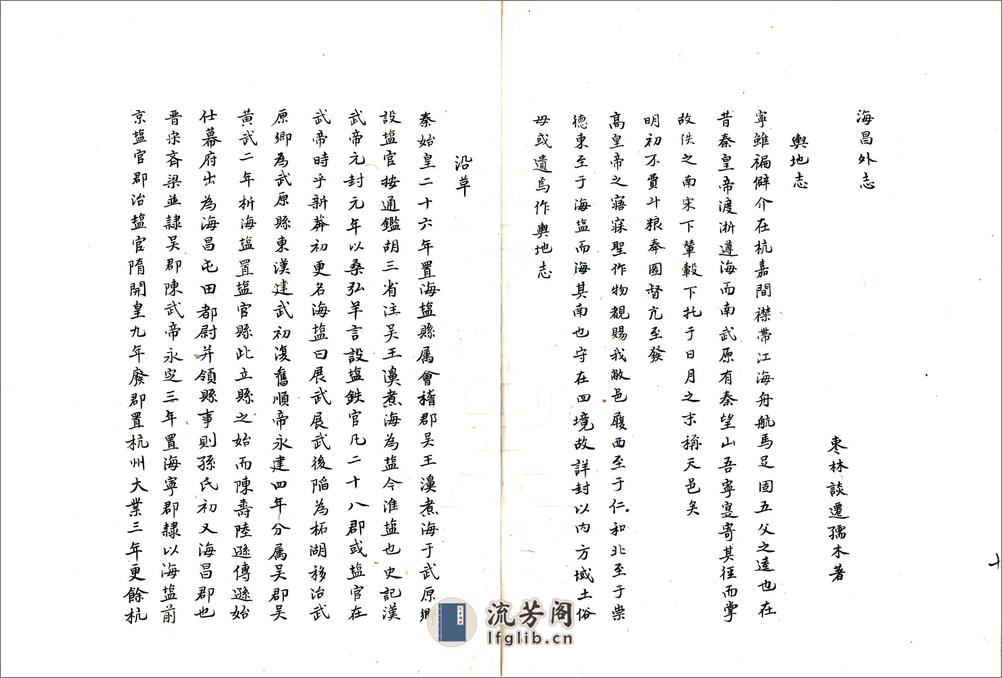 海昌外志
棗林談遷孺木著
輿地志
寧雖褊僻介在杭嘉間襟帶江海舟航馬足固五父之逵也在
昔秦皇帝渡浙遵海而南武原有秦望山吾寧寔寄其徑而掌
故佚之南宋下輦轂下托于日月之末稱天邑矣
明初不費斗粮奉圖督亢至發
高皇帝之寤寐聖作物覩賜我敝邑履西至于仁。和北至于崇
德東至于海塩而海其南也守在四境故詳封以内方域土俗
毋或遺焉作輿地志
沿革
秦始皇二十六年置海塩縣属會稽郡吴王濞煮海于武原鄉
設塩官按通鑑胡三省注吴王濞煮海為塩今淮塩也史記漢
武帝元封元年以桑弘羊言設塩鉄官凡二十八郡或塩官在
武帝時乎新莽初更名海塩曰展武展武後陷為柘湖移治武
原鄉為武原縣東漢建武初復舊順帝永建四年分属吴郡吴
黄武二年析海塩置塩官縣此立縣之始而陳壽陸遜傳遜始
仕幕府出為海昌屯田都尉并領縣事則孫氏初又海昌郡也
晋宋斉梁並隷吴郡陳武帝永定三年置海寧郡隷以海塩前
京塩官郡治塩官隋開皇九年廢郡置杭州大業三年更餘杭
流芳阁
lfglib.cn